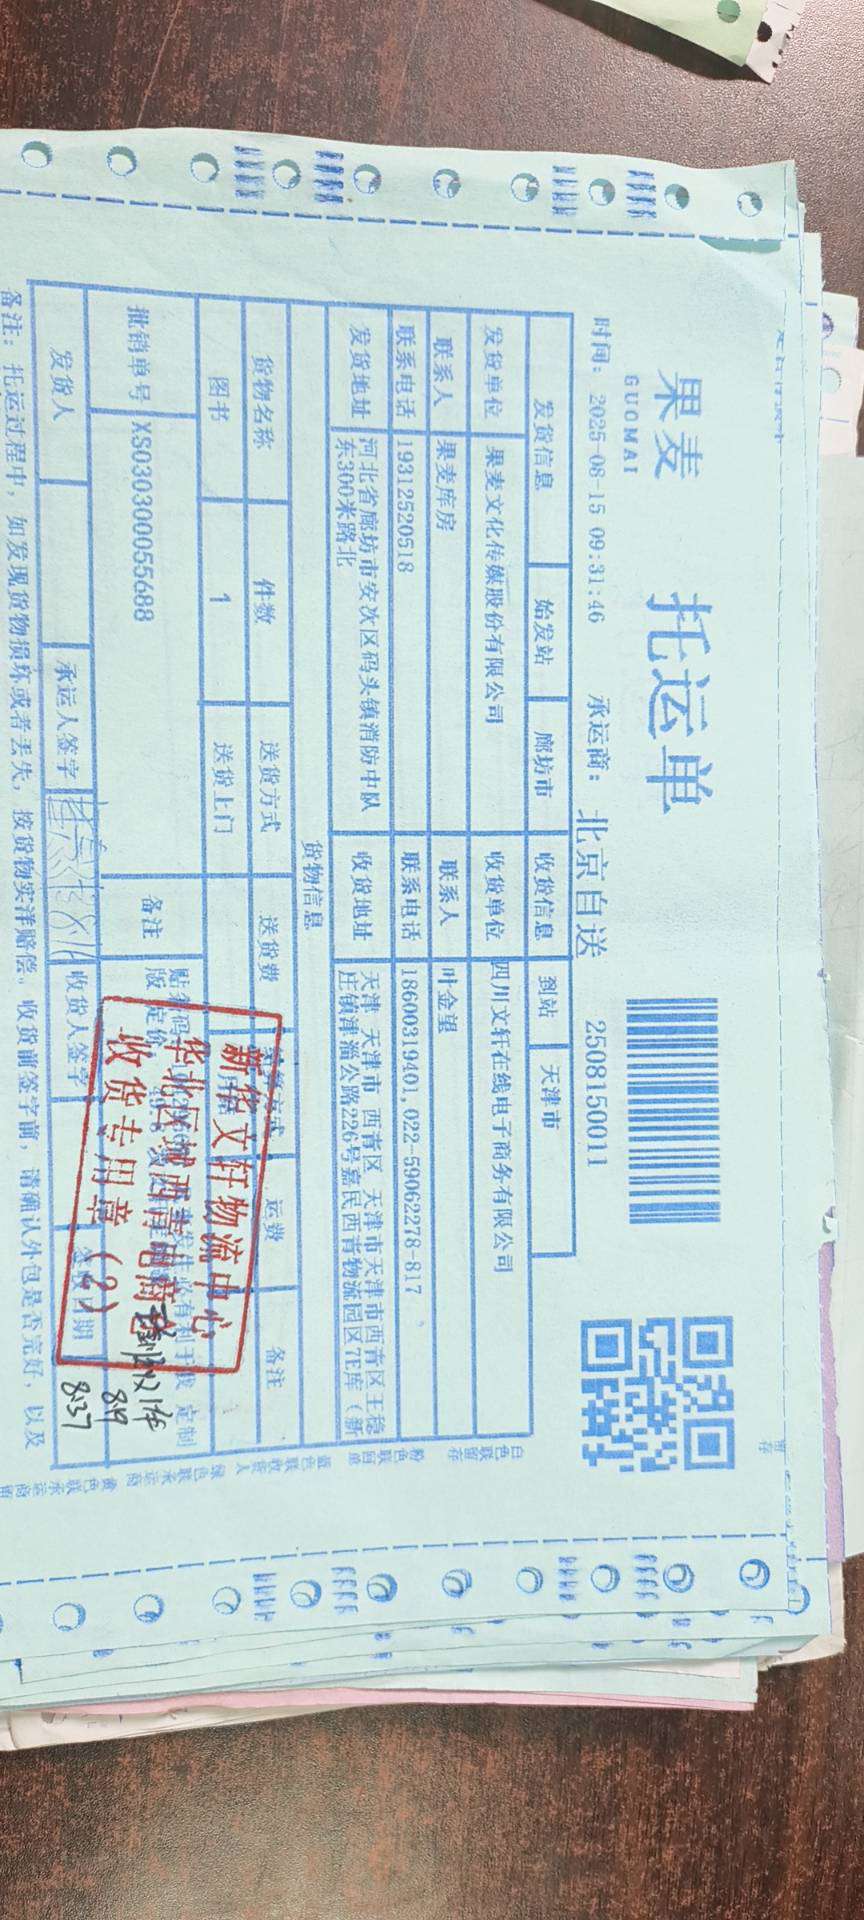 果麦
GUOMAI
托运单
时间: 2025-08-15 09:31:46 承运商: 北京自送 2508150011
发货信息 始发站 廊坊市 收货信息 到站 天津市
发货单位 果麦文化传媒股份有限公司 收货单位 四川文轩在线电子商务有限公司
联系人 果麦库房 联系人 叶金望
联系电话 19312520518 联系电话 18600319401,022-59062278-817
发货地址 河北省廊坊市安次区码头镇消防中队东300米路北 收货地址 天津 天津市 西青区 天津市天津市西青区王稳庄镇津淄公路226号嘉民西青物流园区7E库（新
货物信息
货物名称 件数 送货方式 送货费 运费 备注
图书 1 送货上门
批销单号 XS030300055688 备注
发货人 承运人签字 收货人签字 日期
备注: 托运过程中, 如发现货物损坏或者丢失, 按货物实洋赔偿。收货前签字前, 请确认外包是否完好, 以及
新华文轩物流中心
华北区域西青电商仓
收货专用章（2）
暂收1件
8.19
8:37